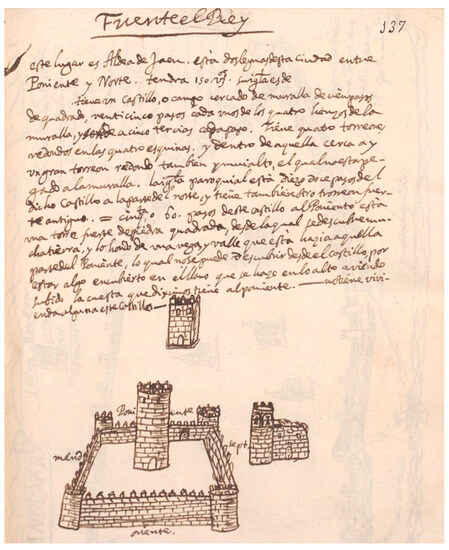 Fuente el Rey
337
este lugar es Aldea de Jaen. està dos leguas desta ciudad entre
Poniente y Norte. tendra 150 vºs. su iglª es de
tiene un castillo, o campo cercado de muralla de cien pasos
de quadrado, veinticinco pasos cada uno de los quatro lienzos de la
muralla, y a cinco tercias cada paso. Tiene quatro torreones
redondos en las quatro esquinas. y dentro de aquella cerca ay
un gran torreon redondo tambien y mui alto, el qual no esta pe-
gado a la muralla. la iglª paroquial està diez o doce pasos del
dicho Castillo a la parte del norte, y tiene tambien otro torreon fuer-
te antiguo. = 60. pasos deste castillo al Poniente està
una torre fuerte de piedra quadrada, desde la qual se descubre mu-
cha tierra, y lo hondo de una vega y valle que està hazia aquella
parte del Poniente, lo qual no se puede descubrir desde el castillo, por
estar algo encubierto en el llano que se haze en lo alto aviendo
subido la cuesta que diximos tiene al poniente. — no tiene vivi-
enda alguna este castillo —
Poniente
merid
sept.
oriente.